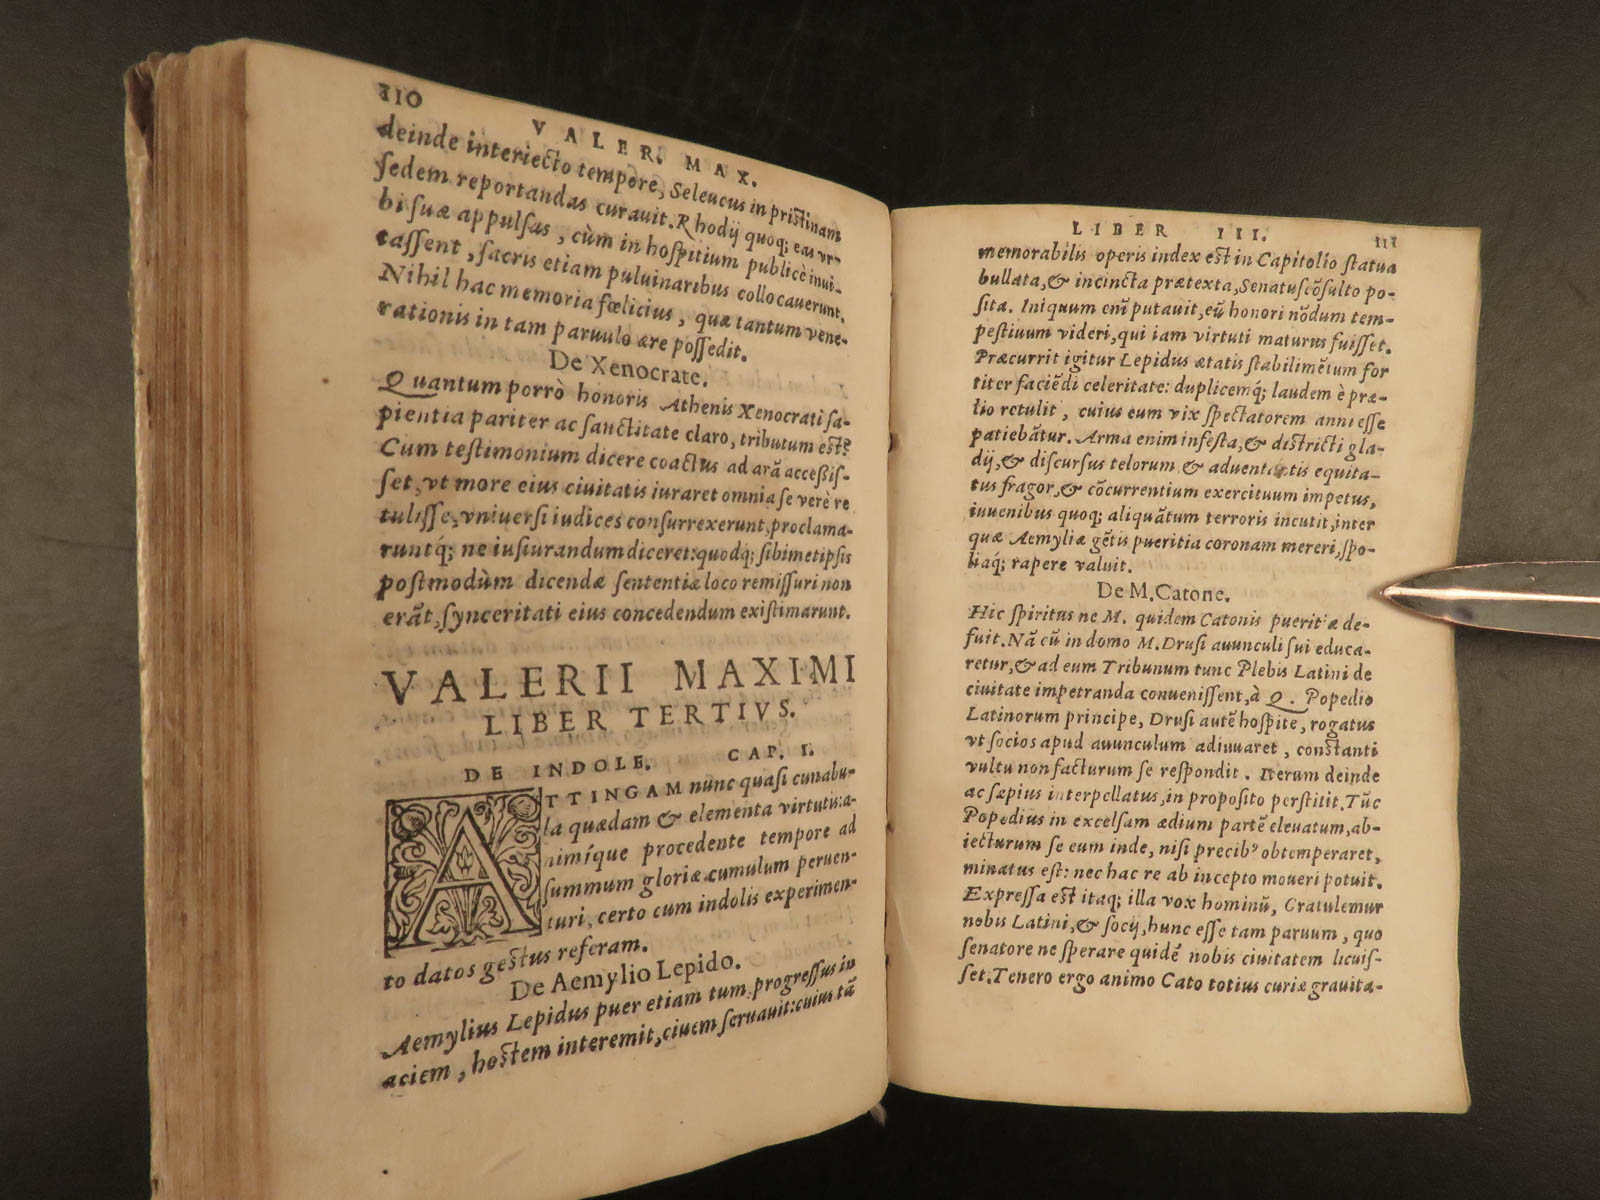 110
VALER. MAX.
deinde interiecto tempore, Seleucus in pristinam
sedem reportandas curauit. Rhodij quoq; eas vr-
bi suæ appulsas, cùm in hospitium publicè inui-
tassent, sacris etiam puluinaribus collocauerunt.
Nihil hac memoria fœlicius, quæ tantum vene-
rationis in tam paruulo ære possedit.
De Xenocrate.
Quantum porrò honoris Athenis Xenocrati sa-
pientia pariter ac sanctitate claro, tributum est?
Cum testimonium dicere coactus ad arã accessis-
set, vt more eius ciuitatis iuraret omnia se verè re
tulisse, vniuersi iudices consurrexerunt, proclama-
runtq́; ne iusiurandum diceret: quodq; sibimetipsis
postmodùm dicendæ sententiæ loco remissuri non
erãt, synceritati eius concedendum existimarunt.
VALERII MAXIMI
LIBER TERTIVS.
DE INDOLE. CAP. I.
ATTINGAM nunc quasi cunabu-
la quædam & elementa virtutis: a-
nimíque procedente tempore ad
summum gloriæ cumulum peruen-
turi, certo cum indolis experimen-
to datos gestus referam.
De Aemylio Lepido.
Aemylius Lepidus puer etiam tum progressus in
aciem, hostem interemit, ciuem seruauit: cuius tã
LIBER III. 111
memorabilis operis index est in Capitolio statua
bullata, & incincta prætexta, Senatuscõsulto po-
sita. Iniquum enĩ putauit, eũ honori nõdum tem-
pestiuum videri, qui iam virtuti maturus fuisset.
Præcurrit igitur Lepidus ætatis stabilimẽtum for
titer faciẽdi celeritate: duplicemq́; laudem è præ-
lio retulit, cuius eum vix spectatorem anni esse
patiebãtur. Arma enim infesta, & districti gla-
dij, & discursus telorum & aduentantis equita-
tus fragor, & cõcurrentium exercituum impetus,
iuuenibus quoq; aliquãtum terroris incutit, inter
quæ Aemyliæ gẽtis pueritia coronam mereri, spo-
liaq́; rapere valuit.
De M. Catone.
Hic spiritus ne M. quidem Catonis pueritiæ de-
fuit. Nã cũ in domo M. Drusi auunculi sui educa-
retur, & ad eum Tribunum tunc Plebis Latini de
ciuitate impetranda conuenissent, à Q. Popedio
Latinorum principe, Drusi autẽ hospite, rogatus
vt socios apud auunculum adiuuaret, constanti
vultu non facturum se respondit. Iterum deinde
ac sæpius interpellatus, in proposito perstitit. Tũc
Popedius in excelsam ædium partẽ eleuatum, ab-
iecturum se eum inde, nisi precibꝰ obtemperaret,
minatus est: nec hac re ab incepto moueri potuit.
Expressa est itaq; illa vox hominũ, Gratulemur
nobis Latini, & socij, hunc esse tam paruum, quo
senatore ne sperare quidẽ nobis ciuitatem licuis-
set. Tenero ergo animo Cato totius curiæ grauita-